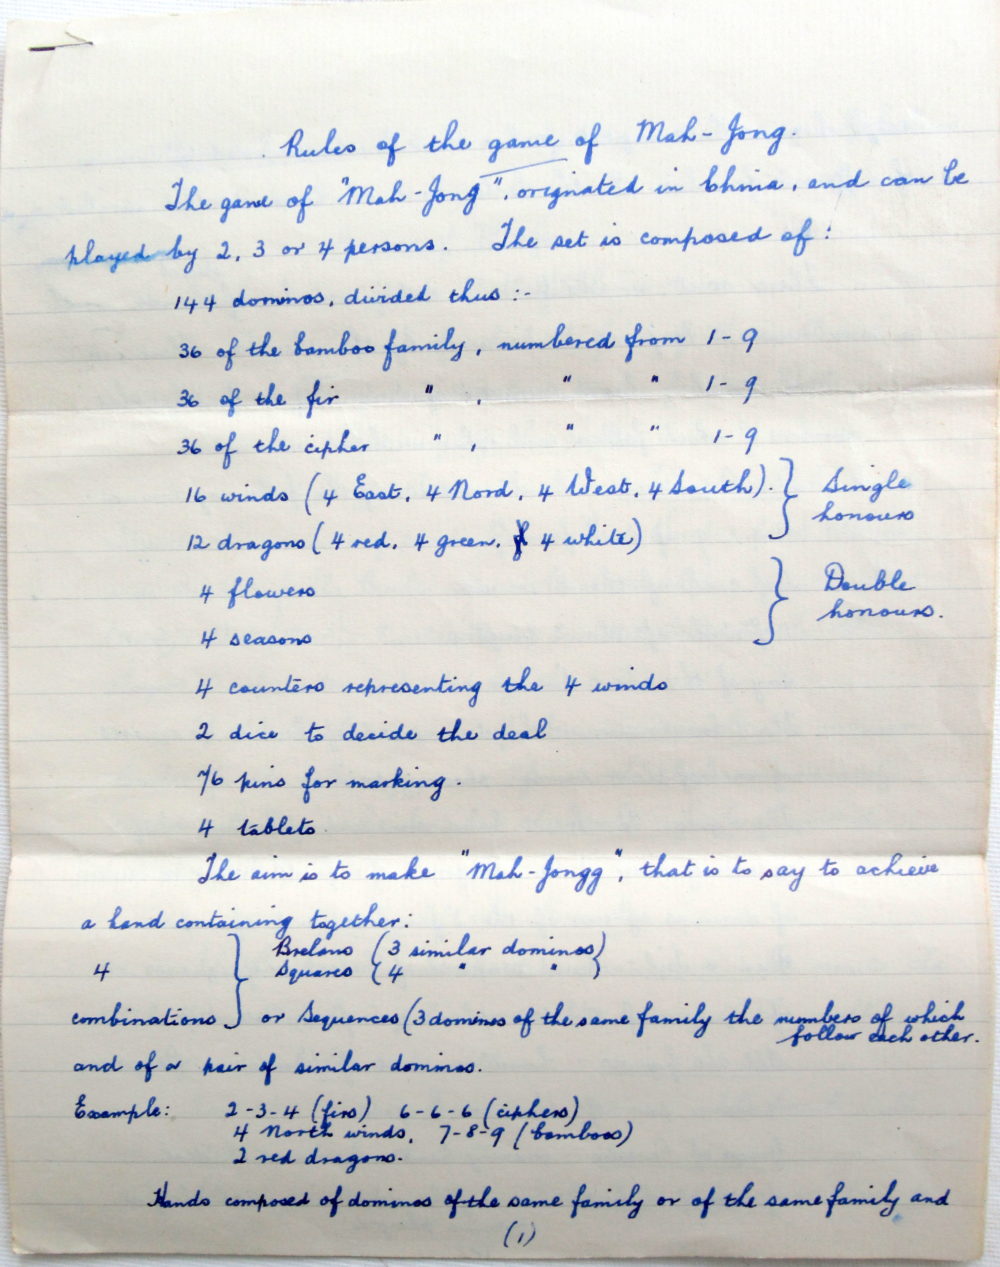 Rules of the game of Mah-Jong.
The game of "Mah-Jong", originated in China, and can be
played by 2, 3 or 4 persons. The set is composed of:
144 dominos, divided thus:-
36 of the bamboo family, numbered from 1-9
36 of the fir " , " " 1-9
36 of the cipher " , " " 1-9
16 winds (4 East, 4 Nord, 4 West, 4 South). } Single
honours
12 dragons (4 red, 4 green, 4 white)
4 flowers } Double
honours.
4 seasons
4 counters representing the 4 winds
2 dice to decide the deal
76 pins for marking.
4 tablets
The aim is to make "Mah-Jongg", that is to say to achieve
a hand containing together:
4 } Brelans (3 similar dominos)
Squares (4 " " )
combinations or Sequences (3 dominos of the same family the numbers of which
follow each other.
and of a pair of similar dominos.
Example: 2-3-4 (firs) 6-6-6 (ciphers)
4 North winds, 7-8-9 (bamboos)
2 red dragons.
Hands composed of dominos of the same family or of the same family and
(1)